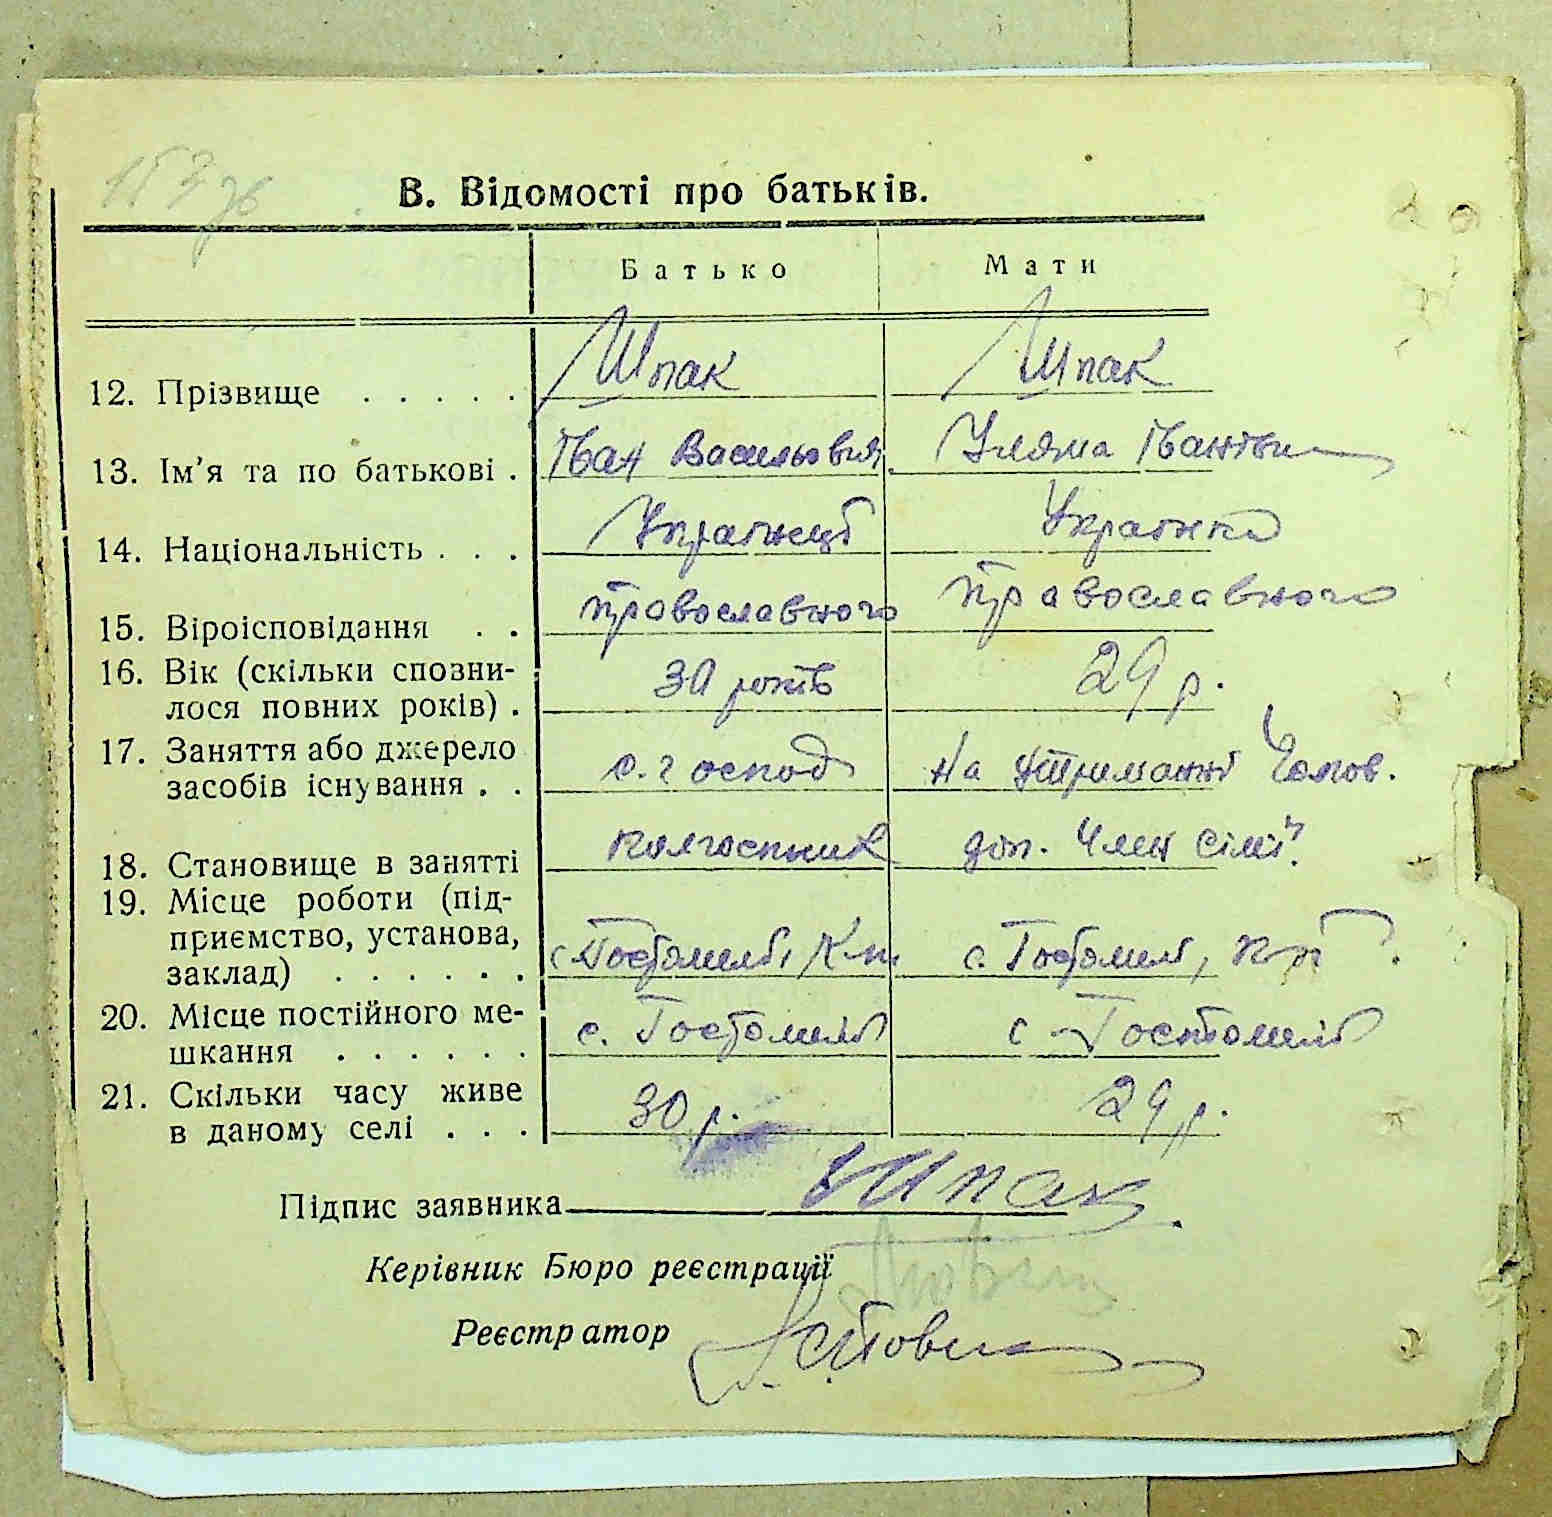 153 зв
В. Відомості про батьків.
Батько Мати
12. Прізвище . . . . . Шпак Шпак
13. Ім'я та по батькові . Іван Васильович Уляна Іванівна
14. Національність . . . Українець Українка
15. Віроісповідання . . православного православного
16. Вік (скільки сповни-
лося повних років) . 30 років 29 р.
17. Заняття або джерело
засобів існування . . с. господ на утриманні Чолов.
18. Становище в занятті колгоспник доп. Член сімї.
19. Місце роботи (під-
приємство, установа,
заклад) . . . . . . с. Гостомель, с. Гостомель,
20. Місце постійного ме-
шкання . . . . . . с. Гостомель с. Гостомель
21. Скільки часу живе
в даному селі . . . 30 р. 29 р.
Підпис заявника Шпак
Керівник Бюро реєстрації
Реєстратор